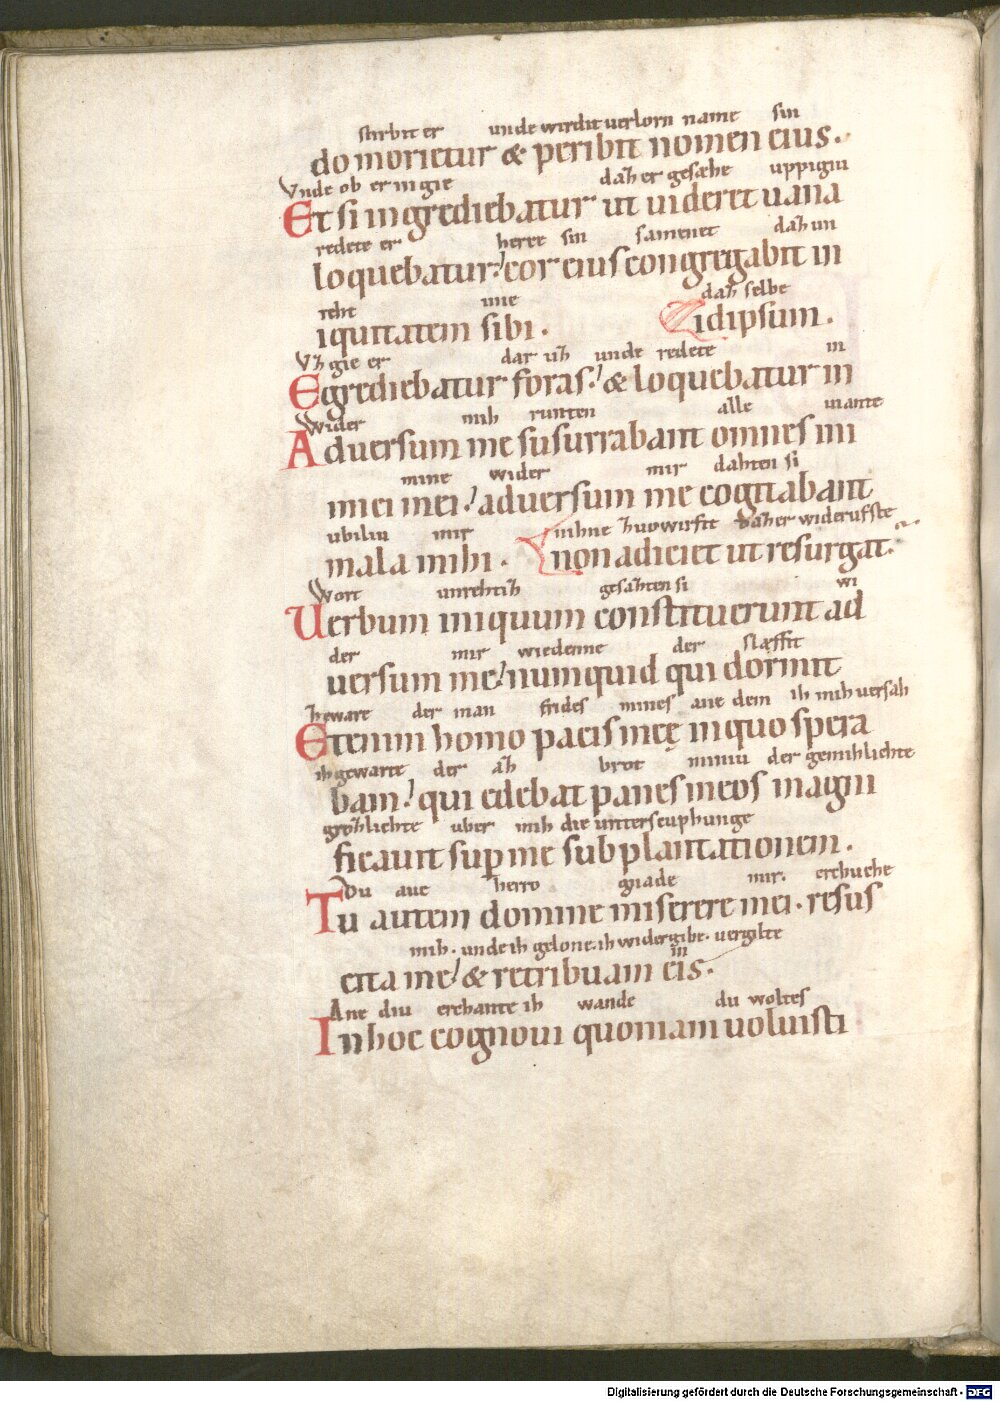 stirbit er unde wirdit verlorn name sin
do morietur & peribit nomen eius.
Vnde ob er in gie daz er gesæhe uppigiu
Et si ingrediebatur ut uideret uana
redete er herce sin samenet daz un
loquebatur: cor eius congregabit in
reht ime daz selbe
iquitatem sibi. idipsum.
Vz gie er dar uz unde redete in
Egrediebatur foras: & loquebatur in
Wider mih runten alle viante
Aduersum me susurrabant omnes ini
mine wider mir dahten si
mici mei: aduersum me cogitabant
ubiliu mir nihne zuowirfit daz er widerufste
mala mihi. non adiciet ut resurgat.
Wort unrehtiz gesazten si wi
Uerbum iniquum constituerunt ad
der mir wiedenne der slæffit
uersum me: numquid qui dormit
zeware der man frides mines ane dem ih mih versah
Etenim homo pacis meę in quo spera
ih gewarte der az brot miniu der genuhlichte
bam: qui edebat panes meos magni
grozlichte uber mih die unterscuphunge
ficauit sup me subplantationem.
Du aue herro gnade mir. erchuche
Tu autem domine miserere mei. resus
mih. unde ih gelone. ih widergibe. vergilte in
cita me: & retribuam eis.
Ane diu erchante ih wande du woltes
In hoc cognoui quoniam uoluisti
Digitalisierung gefördert durch die Deutsche Forschungsgemeinschaft - DFG